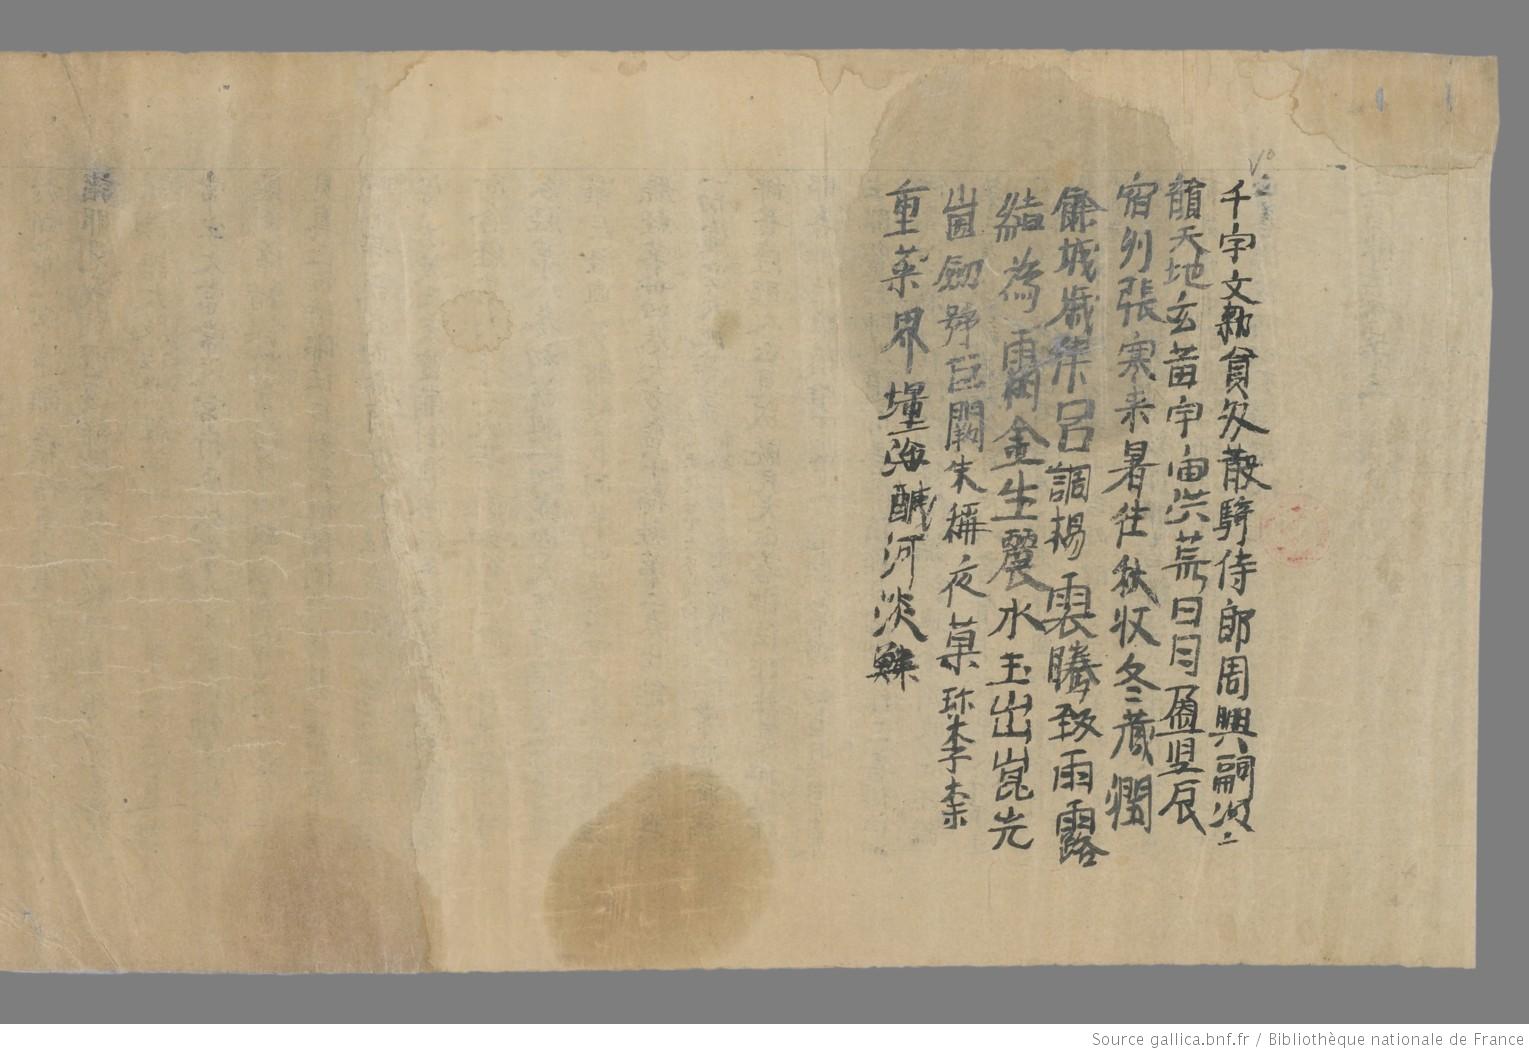 千字文勑貟外散騎侍郎周興嗣次
韻天地玄黃宇宙洪荒日月盈昃辰
宿列張寒来暑往秋收冬藏潤
餘城歲律呂調楊雲騰致雨露
結為霜金生麗水玉出崑光
劎號巨闕朱稱夜菓珎李柰
重菜界壃海醎河淡鱗
Source gallica.bnf.fr / Bibliothèque nationale de France